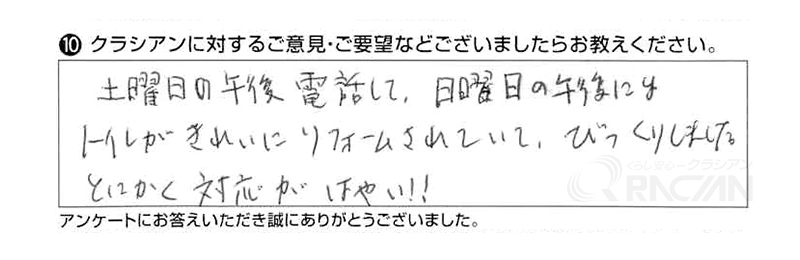 ⑩ クラシアンに対するご意見・ご要望などございましたらお教えください。
土曜日の午後電話して、日曜日の午後には
トイレがきれいにリフォームされていて、びっくりしました
とにかく対応がはやい!!
くらし安心クラシアン
QRACIAN
アンケートにお答えいただき誠にありがとうございました。